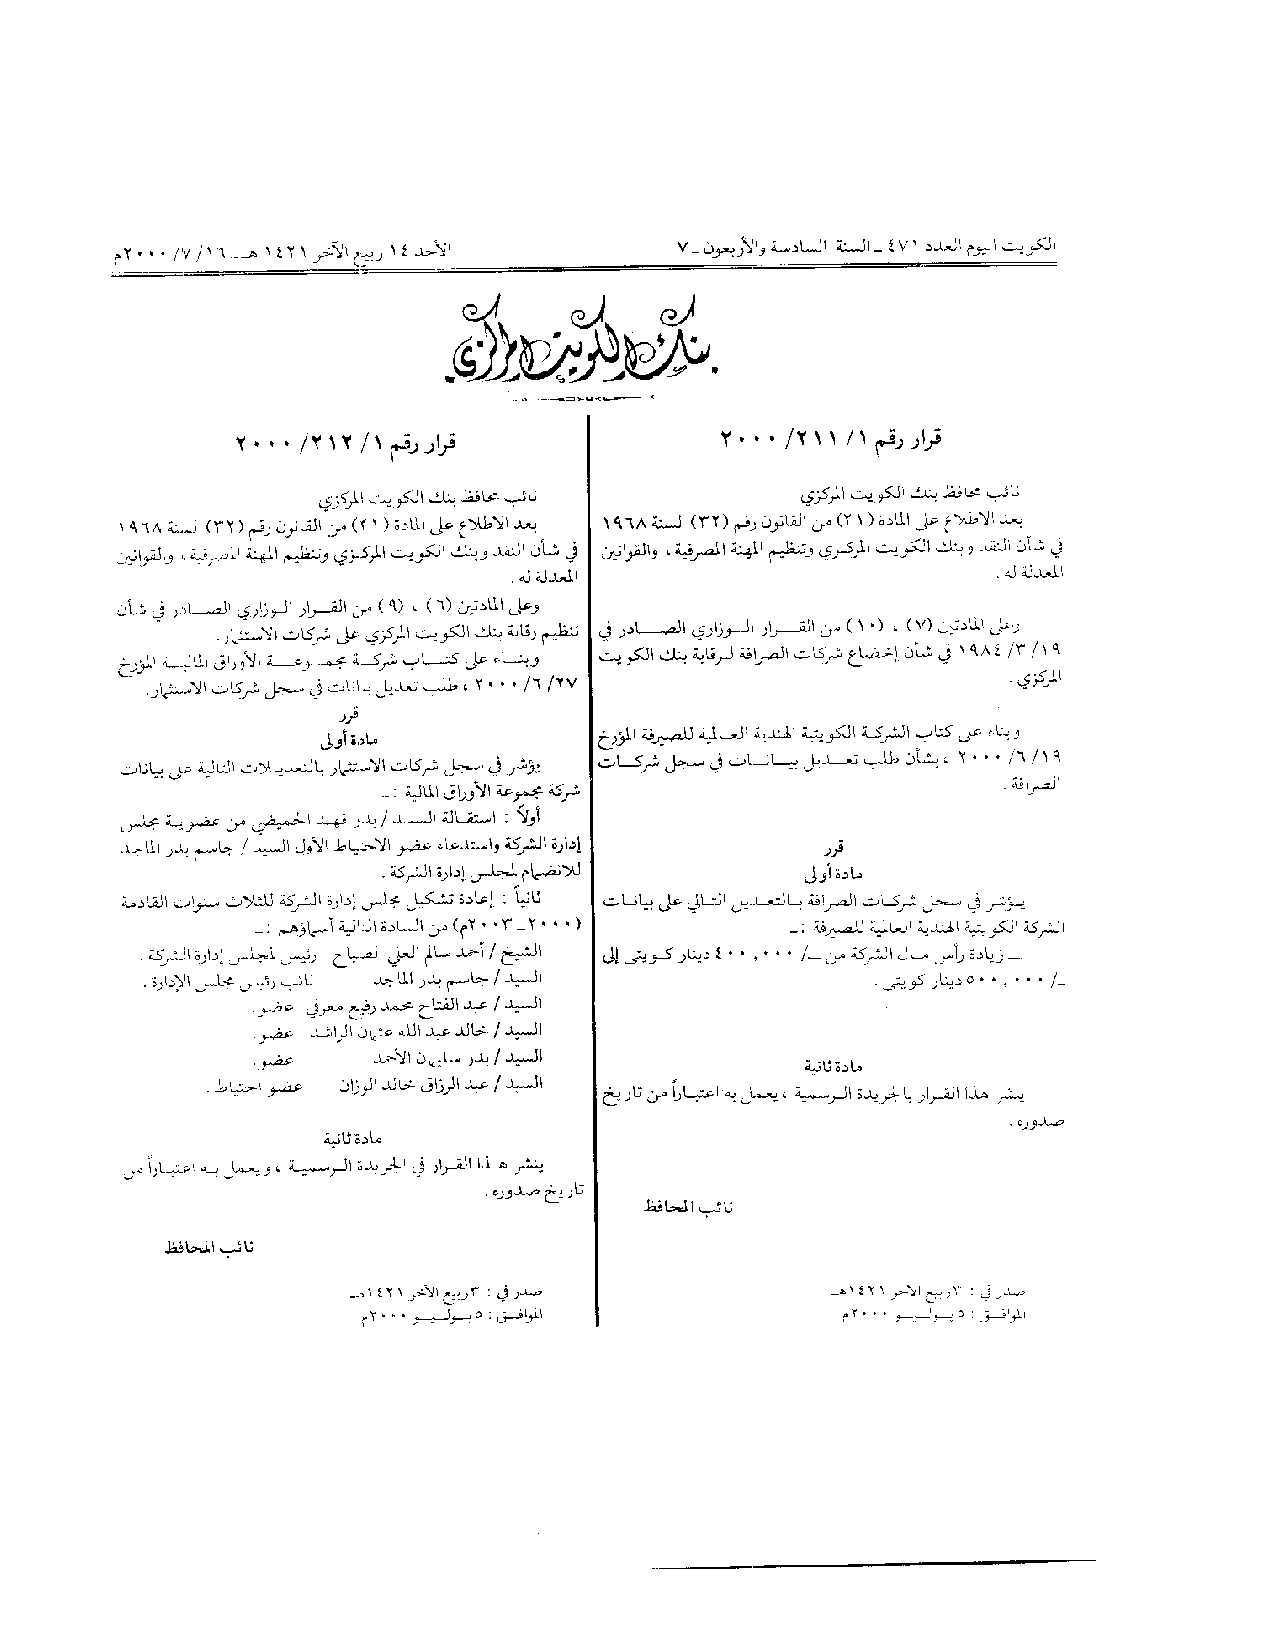 الكويت اليوم العدد ٤٧١ ـ السنة السادسة والأربعون ـ ٧
الأحد ١٤ ربيع الآخر ١٤٢١ هـ ـ ١٦/ ٧/ ٢٠٠٠م
بنك الكويت المركزي
قرار رقم ١/ ٢١١/ ٢٠٠٠
نائب محافظ بنك الكويت المركزي
بعد الاطلاع على المادة (٢١) من القانون رقم (٣٢) لسنة ١٩٦٨
في شأن النقد وبنك الكويت المركزي وتنظيم المهنة المصرفية ، والقوانين
المعدلة له .
وعلى المادتين (٧) ، (١٠) من القرار الوزاري الصادر في
١٩/ ٣/ ١٩٨٤ في شأن إخضاع شركات الصرافة لرقابة بنك الكويت
المركزي .
وبناء على كتاب الشركة الكويتية الهندية العالمية للصيرفة المؤرخ
١٩/ ٦/ ٢٠٠٠ ، بشأن طلب تعديل بيانات في سجل شركات
الصرافة .
قرر
مادة أولى
يؤشر في سجل شركات الصرافة بالتعديل التالي على بيانات
الشركة الكويتية الهندية العالمية للصيرفة : ـ
ـ زيادة رأس مال الشركة من ـ/ ٤٠٠,٠٠٠ دينار كويتي إلى
ـ/ ٥٠٠,٠٠٠ دينار كويتي .
مادة ثانية
ينشر هذا القرار بالجريدة الرسمية ، يعمل به اعتباراً من تاريخ
صدوره .
نائب المحافظ
صدر في : ٣ ربيع الآخر ١٤٢١هـ
الموافق : ٥ يوليو ٢٠٠٠م
قرار رقم ١/ ٢١٢/ ٢٠٠٠
نائب محافظ بنك الكويت المركزي
بعد الاطلاع على المادة (٢١) من القانون رقم (٣٢) لسنة ١٩٦٨
في شأن النقد وبنك الكويت المركزي وتنظيم المهنة المصرفية ، والقوانين
المعدلة له .
وعلى المادتين (٦) ، (٩) من القرار الوزاري الصادر في شأن
تنظيم رقابة بنك الكويت المركزي على شركات الاستثمار .
وبناء على كتاب شركة مجموعة الأوراق المالية المؤرخ
٢٧/ ٦/ ٢٠٠٠ ، طلب تعديل بيانات في سجل شركات الاستثمار .
قرر
مادة أولى
يؤشر في سجل شركات الاستثمار بالتعديلات التالية على بيانات
شركة مجموعة الأوراق المالية : ـ
أولاً : استقالة السيد / بدر فهد الحميضي من عضوية مجلس
إدارة الشركة واستدعاء عضو الاحتياط الأول السيد / جاسم بدر الماجد
للانضمام لمجلس إدارة الشركة .
ثانياً : إعادة تشكيل مجلس إدارة الشركة للثلاث سنوات القادمة
(٢٠٠٠ ـ ٢٠٠٣م) من السادة التالية أسماؤهم : ـ
الشيخ / أحمد سالم العلي الصباح رئيس لمجلس إدارة الشركة .
السيد / جاسم بدر الماجد نائب رئيس مجلس الإدارة .
السيد / عبد الفتاح محمد رفيع معرفي عضو .
السيد / خالد عبد الله عثمان الراشد عضو .
السيد / بدر سليمان الأحمد عضو .
السيد / عبد الرزاق خالد الوزان عضو احتياط .
مادة ثانية
ينشر هذا القرار في الجريدة الرسمية ، ويعمل به اعتباراً من
تاريخ صدوره .
نائب المحافظ
صدر في : ٣ ربيع الآخر ١٤٢١هـ
الموافق : ٥ يوليو ٢٠٠٠م